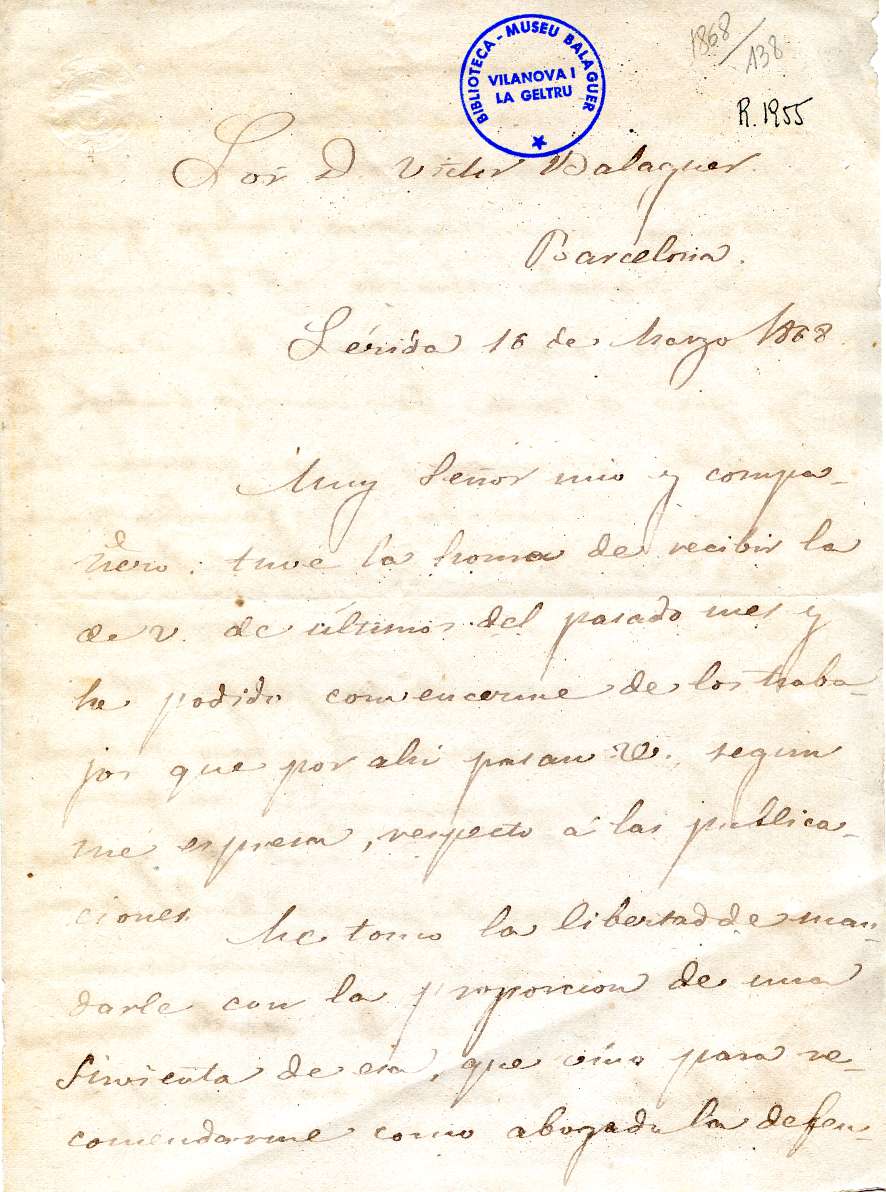 1868/138
BIBLIOTECA - MUSEU BALAGUER
VILANOVA I
LA GELTRU
R. 1955
Sor D Victor Balaguer.
Barcelona.
Lérida 16 de Marzo 1868
Muy Señor mio y compa-
ñero: tuve la honra de recibir la
de V. de últimos del pasado mes y
he podido convencerme de los traba-
jos que por ahi pasan VV., segun
me espresa, respecto á las publica-
ciones. Me tomo la libertad de man-
darle con la proporcion de una
sirvienta de esa, que vino para re-
comendarme como abogado la defen-